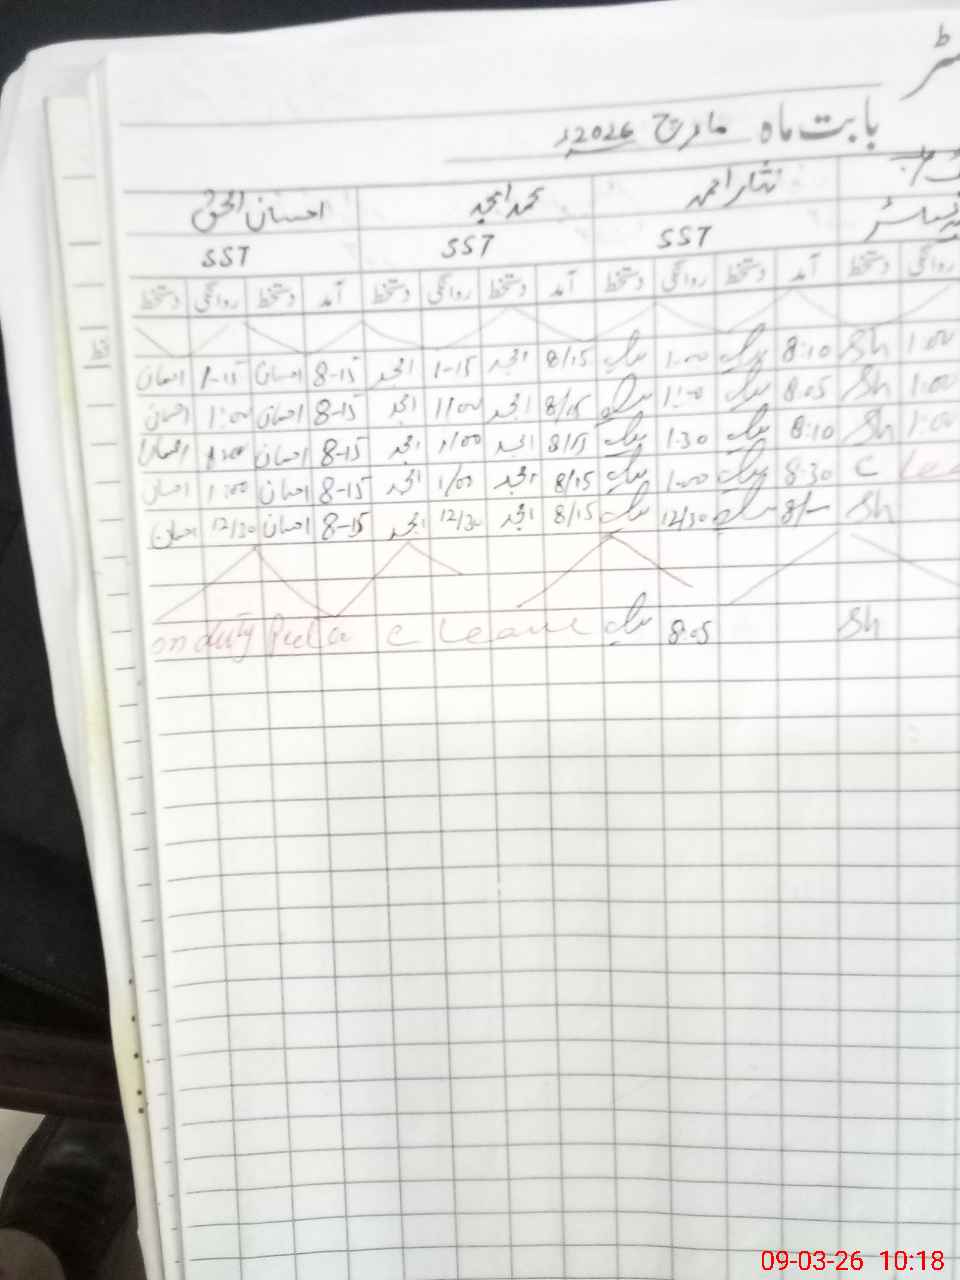 بابت ماہ مارچ 2026ء
نثار احمد محمد امجد احسان الحق
SST SST SST
روانگی دستخط آمد دستخط روانگی دستخط آمد دستخط روانگی دستخط آمد دستخط روانگی دستخط
1:00 Sh 8:10 1:00 8/15 امجد 1-15 امجد 8-15 احسان 1-15 احسان
1:00 Sh 8:05 1:00 8/15 امجد 1/00 امجد 8-15 احسان 1:00 احسان
1:00 Sh 8:10 1:30 8/15 امجد 1/00 امجد 8-15 احسان 1:00 احسان
C Lea 8:30 1:00 8/15 امجد 1/00 امجد 8-15 احسان 1:00 احسان
Sh 8/- 12/30 8/15 امجد 12/30 امجد 8-15 احسان 12/30 احسان
Sh 8:05 C Leave on duty
09-03-26 10:18